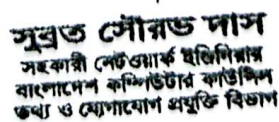 সুব্রত সৌরভ দাস
সহকারী নেটওয়ার্ক ইঞ্জিনিয়ার
বাংলাদেশ কম্পিউটার কাউন্সিল
তথ্য ও যোগাযোগ প্রযুক্তি বিভাগ